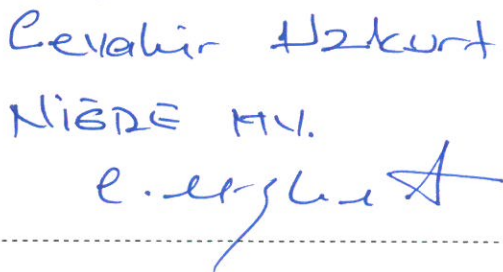 Cevahir Uzkurt
NİĞDE MV.